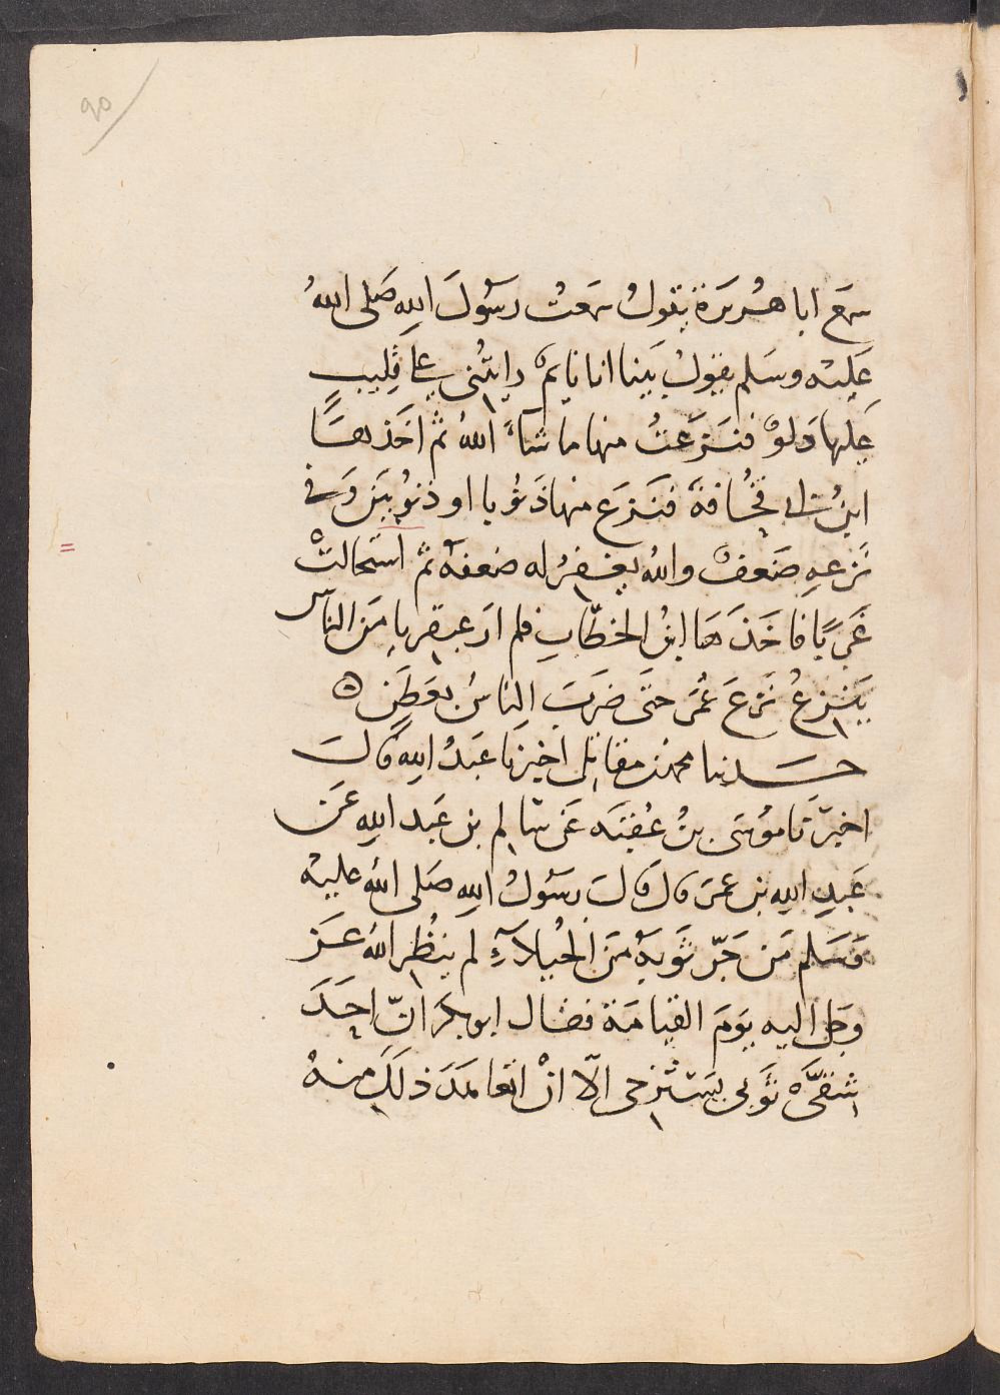 ٩٥
سمع ابا هُريَرَة يقولُ سَمعتُ رسَولَ اللهِ صَلى اللهُ
عَليهْ وسَلم يقولُ بَينا انا نايمٌ رايتُنى على قَليبٍ
عَليها دَلوٌ فنَزَعتُ منها ما شآءَ اللهُ ثم اخَذهَا
ابنُ ابى قُحُافةَ فنَزعَ منها ذَنُوبا او ذنوُبَيَن وَفى
نَزعهِ ضَعفٌ واللهُ يغفرُ له ضعفهُ ثم استحالتْ
غَربًا فاخَذَهَا ابنُ الخطّابِ فلم ارَ عبقريا مِنَ الناس
يَنزعُ نَزعَ عُمَر حتىَ ضرَبَ الناسُ بعَطَنٍ ه
حَدثنا محمد بن مقاتل اخبرنا عَبدُ اللهِ قالَ
اخبَرنَا موُسَى بنُ عُقبَه عَن سَالم بن عَبد اللهِ عَن
عَبدِ اللهِ بن عمَر قال قالَ رسَولُ اللهِ صَلى اللهُ عليهْ
وَسَلم مَن جَرّ ثَوبهُ مَن الخُيلآءِ لم ينظُرِ اللهُ عَز
وجَل اليه يوَمَ القيامَة فقال ابو بكر انّ احَدَ
شقىَّ ثَوبى يسَترخى الّا انْ اتعامَدَ ذلكَ منهُ